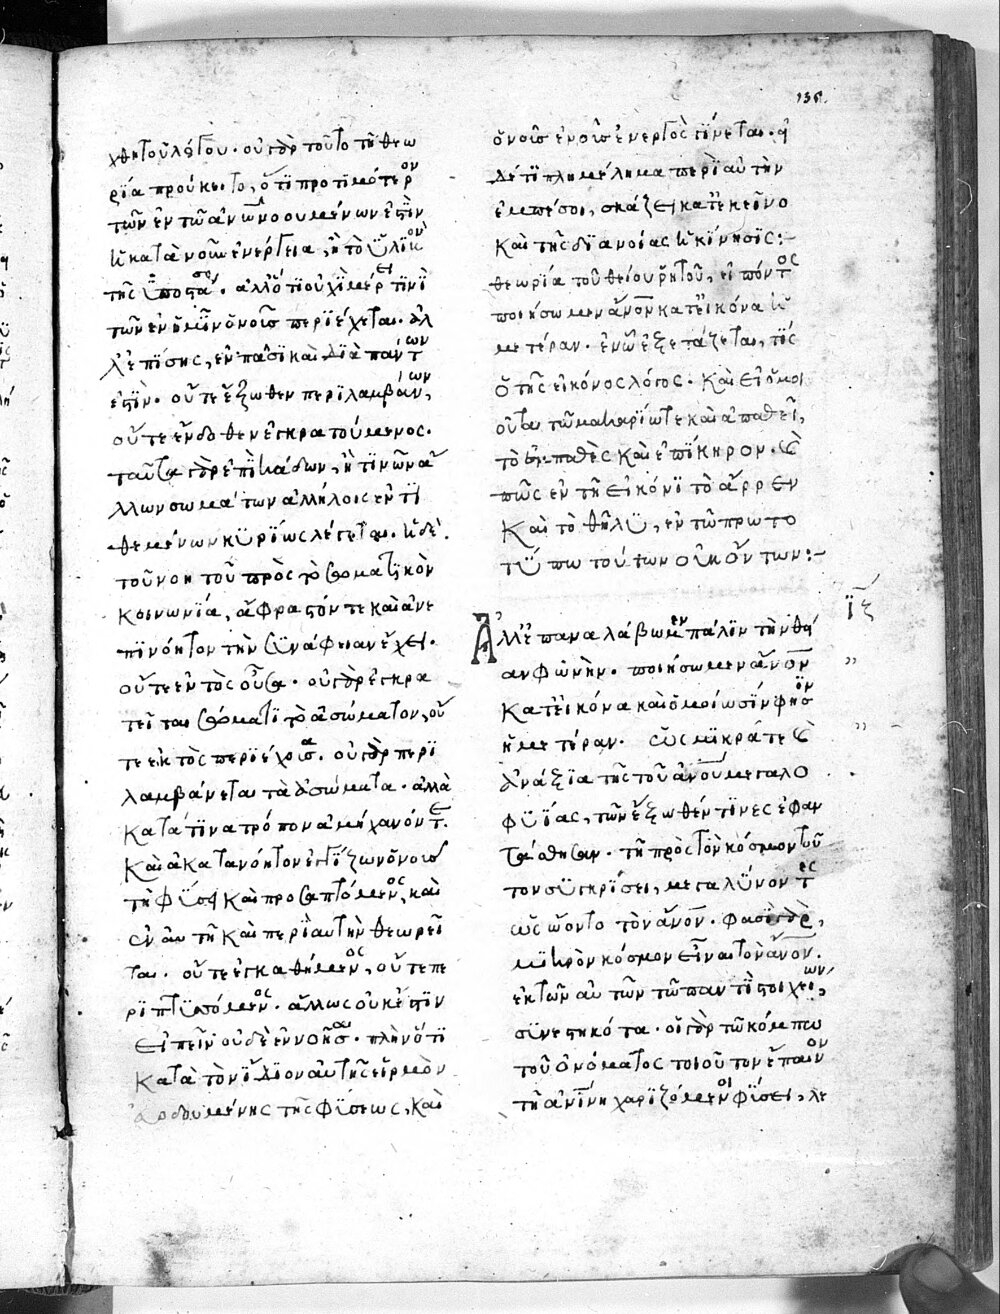 χθητοῦ λόγου. οὐ γὰρ τοῦτο τῇ θεω
ρία προύκειτο, ὅτι προτιμότερον
τῶν ἐν τῶ ἀνω νοουμένων ἐστὶν
ἡ κατὰ νοῦν ἐνέργεια, ἢ τὸ ὑλϊκὸν
τῆς ὑποστάσ. ἀλλ' ὅτι οὐχὶ μέρει τινὶ
τῶν ἐν ἡμῖν ὁ νοῦς περϊέχεται. ἀλ
λ' ἐπίσης, ἐν πᾶσϊ καὶ δϊὰ πάντων
ἐστὶν. οὔτε ἔξωθεν περϊλαμβάνων,
οὔτε ἔνδοθεν ἐγκρατούμενος.
ταῦτα γὰρ ἐπὶ κάδων, ἤ τϊνων ἄ
λλων σωμάτων ἀλλήλοις ἐντϊ
θεμένων κϋρίως λέγεται. ἡ δὲ
τοῦ νοῦ τοῦ πρὸς τὸ σωματϊκὸν
κοινωνία, ἄφραστόν τε καὶ ἀνε
πϊνόητον τὴν συνάφειαν ἔχει.
οὔτε ἐντὸς οὖσα. οὐ γὰρ ἐγκρα
τεῖται σώματϊ τὸ ἀσώματον, οὔ
τε ἐκτὸς περϊέχουσα. οὐ γὰρ περϊ
λαμβάνεται τὰ ἀσώματα. ἀλλὰ
κατά τϊνα τρόπον ἀμήχανόν τε.
καὶ ἀκατανόητον ἐγγίζων ὁ νοῦς
τῇ φύσει καὶ προσαπτόμενος, καὶ
ἐν αὐτῇ καὶ περὶ αὐτὴν θεωρεῖ
ται. οὔτε ἐγκαθήμενος, οὔτε πε
ρϊπτϋσσόμενος. ἀλλ' ὡς οὐκ ἔστϊν
εἰπεῖν οὐδὲ ἐννοῆσαι. πλὴν ὅτϊ
κατὰ τὸν ἴδϊον αὐτῆς εἱρμὸν
εὐοδουμένης τῆς φύσεως, καὶ
136.
ὁ νοῦς ἐνεργὸς γίνεται. εἰ
δέ τϊ πλημμέλημα περὶ αὐτὴν
ἐμπέσοι, σκάζει κατ' ἐκεῖνο
καὶ τῆς δϊανοίας ἡ κίνησϊς:-
θεωρία τοῦ θείου ῥητοῦ, εἰπόντος
ποιήσωμεν ἄνον κατ' εἰκόνα ἡ
μετέραν. ἐν ὧ ἐξετάζεται, τίς
ὁ τῆς εἰκόνος λόγος. καὶ εἰ ὁμοι
οῦται τῶ μακαρίω τε καὶ ἀπαθεῖ,
τὸ ἐμπαθὲς καὶ ἐπίκηρον. καὶ
πῶς ἐν τῇ εἰκόνι τὸ ἄρρεν
καὶ τὸ θῆλϋ, ἐν τῶ πρωτο
τύπω τούτων οὐκ ὄντων:-
ιϛ
Ἀλλ' ἐπαναλάβωμεν πάλϊν τὴν θεί
αν φωνὴν. ποιήσωμεν ἄνον
κατ' εἰκόνα καὶ ὁμοίωσϊν φησὶν
ἡμετέραν. ὡς μϊκρά τε καὶ
ἀνάξϊα τῆς τοῦ ἀνου μεγαλο
φϋΐας, τῶν ἔξωθέν τϊνες ἐφαν
τάσθησαν. τῇ πρὸς τὸν κόσμον τοῦ
τον συγκρίσει, μεγαλύνοντες
ὡς ὤοντο τὸν ἄνον. φασὶ γὰρ,
μϊκρὸν κόσμον εἶναι τὸν ἄνον.
ἐκ τῶν αὐτῶν τῶ παντὶ στοιχείων,
σϋνεστηκότα. οἱ γὰρ τῶ κόμπω
τοῦ ὀνόματος τοιοῦτον ἔπαινον
τῇ ἀνίνη χαρϊζόμενοι φύσει, λε